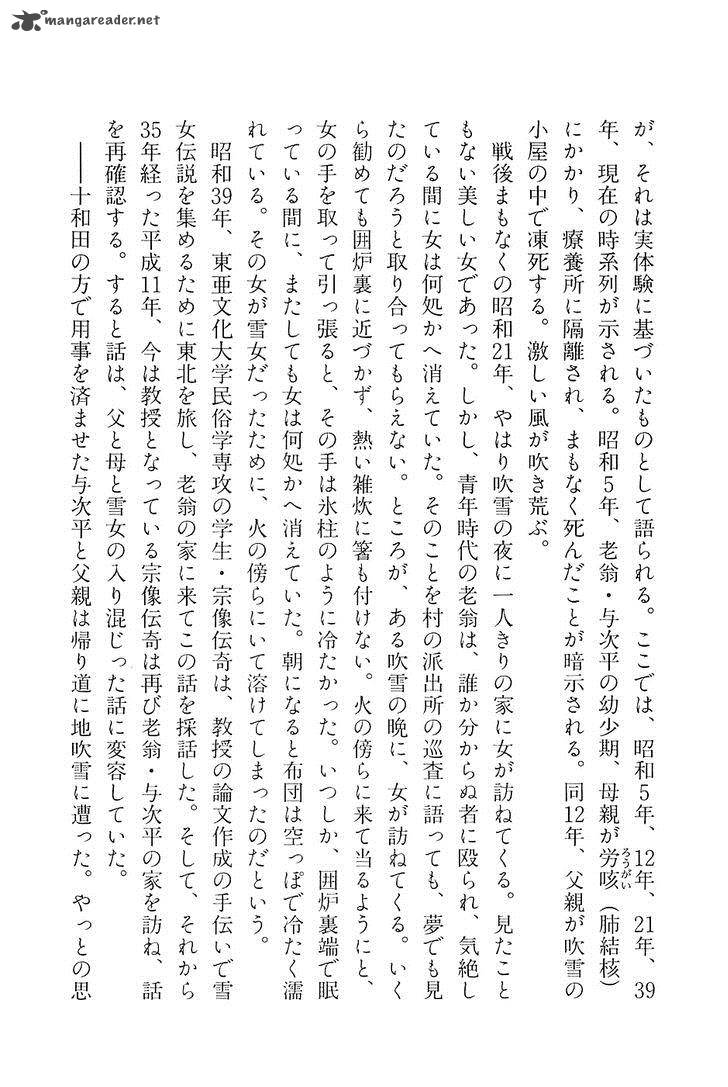 mangareader.net
が、それは実体験に基づいたものとして語られる。ここでは、昭和5年、12年、21年、39
年、現在の時系列が示される。昭和5年、老翁・与次平の幼少期、母親が労咳（肺結核）
ろうがい
にかかり、療養所に隔離され、まもなく死んだことが暗示される。同12年、父親が吹雪の
小屋の中で凍死する。激しい風が吹き荒ぶ。
戦後まもなくの昭和21年、やはり吹雪の夜に一人きりの家に女が訪ねてくる。見たこと
もない美しい女であった。しかし、青年時代の老翁は、誰か分からぬ者に殴られ、気絶し
ている間に女は何処かへ消えていた。そのことを村の派出所の巡査に語っても、夢でも見
たのだろうと取り合ってもらえない。ところが、ある吹雪の晩に、女が訪ねてくる。いく
ら勧めても囲炉裏に近づかず、熱い雑炊に箸も付けない。火の傍らに来て当るようにと、
女の手を取って引っ張ると、その手は氷柱のように冷たかった。いつしか、囲炉裏端で眠
っている間に、またしても女は何処かへ消えていた。朝になると布団は空っぽで冷たく濡
れている。その女が雪女だったために、火の傍らにいて溶けてしまったのだという。
昭和39年、東亜文化大学民俗学専攻の学生・宗像伝奇は、教授の論文作成の手伝いで雪
女伝説を集めるために東北を旅し、老翁の家に来てこの話を採話した。そして、それから
35年経った平成11年、今は教授となっている宗像伝奇は再び老翁・与次平の家を訪ね、話
を再確認する。すると話は、父と母と雪女の入り混じった話に変容していた。
――十和田の方で用事を済ませた与次平と父親は帰り道に地吹雪に遭った。やっとの思